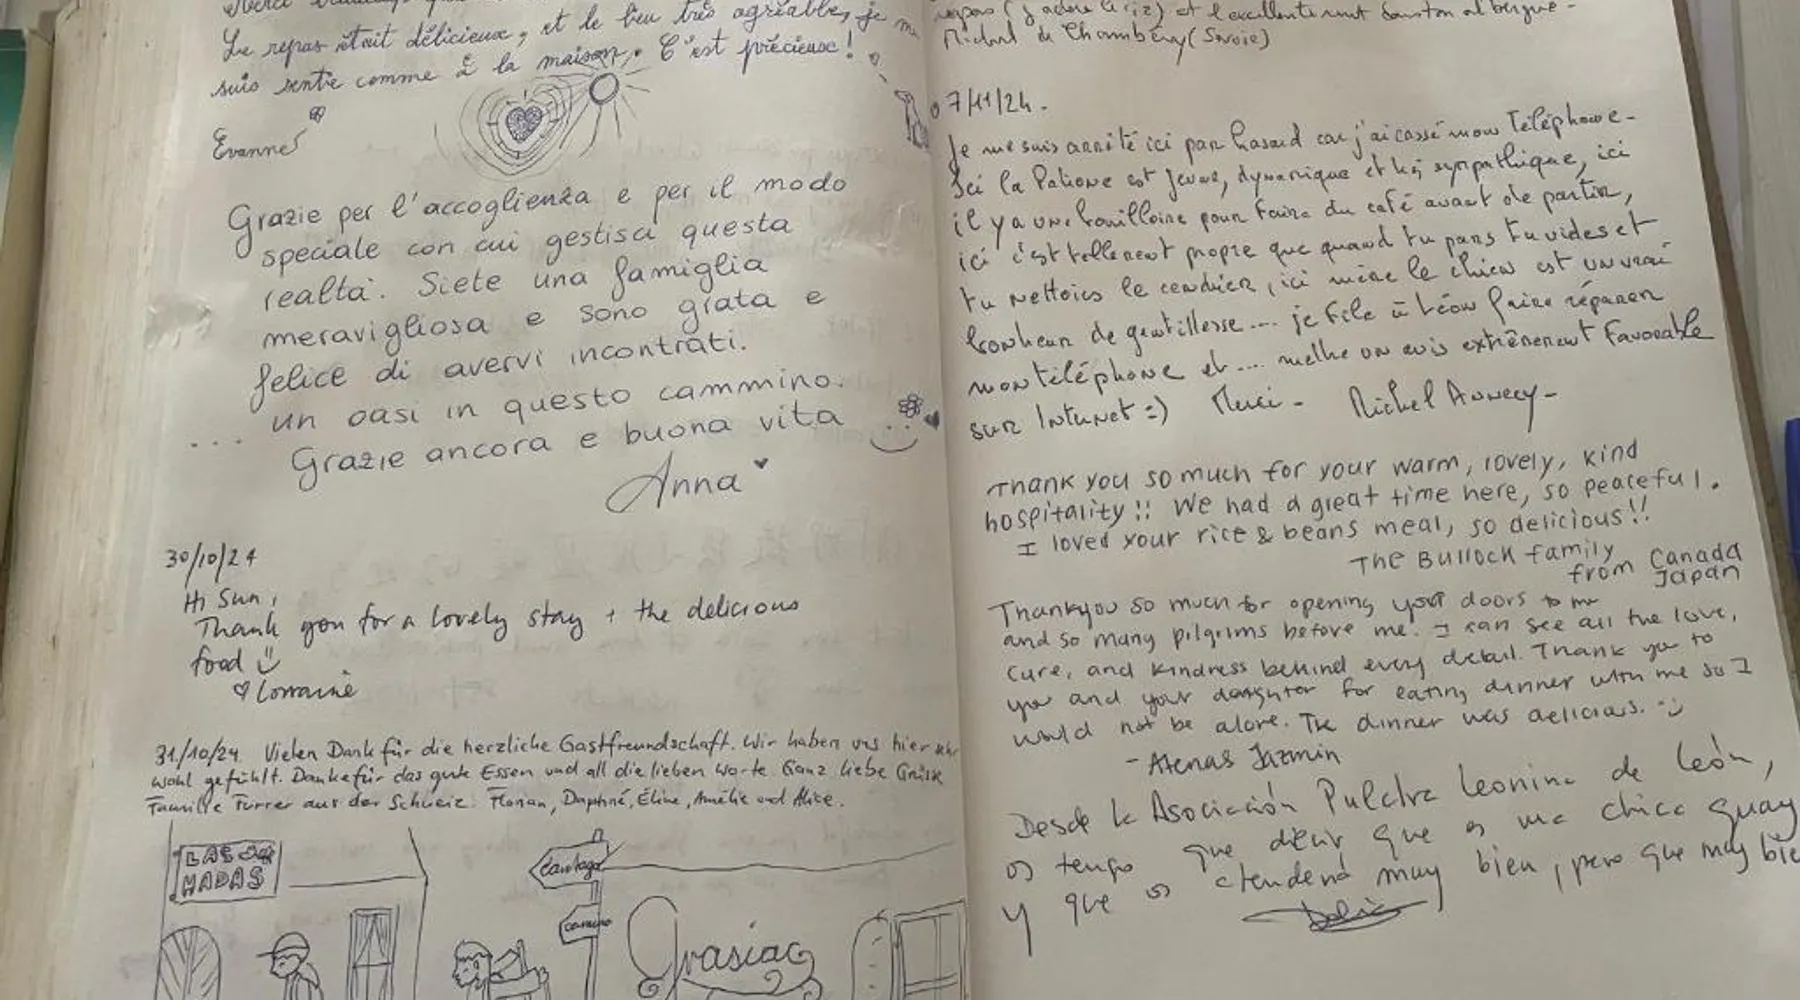 Merci
Le repas était délicieux, et le lieu très agréable, je me
suis sentie comme à la maison. C'est précieux !
Evanne
Grazie per l'accoglienza e per il modo
speciale con cui gestisci questa
realtà. Siete una famiglia
meravigliosa e sono grata e
felice di avervi incontrati.
... un oasi in questo cammino.
Grazie ancora e buona vita
Anna
30/10/24
Hi Sun,
Thank you for a lovely stay + the delicious
food
Lorraine
31/10/24. Vielen Dank für die herzliche Gastfreundschaft. Wir haben uns hier sehr
wohl gefühlt. Danke für das gute Essen und all die lieben Worte. Ganz liebe Grüsse
Familie Furrer aus der Schweiz. Florian, Daphné, Eline, Amélie und Alice.
LAS
HADAS
Santiago
camino
Grasias
repas (j'adore le riz) et l'excellente nuit dans ton albergue -
Richard de Chambéry (Savoie)
07/11/24.
Je me suis arrêté ici par hasard car j'ai cassé mon Téléphone -
Ici la Patrone est jeune, dynamique et très sympathique, ici
il y a une bouilloire pour faire du café avant de partir,
ici c'est tellement propre que quand tu pars tu vides et
tu nettoies le cendrier, ici même le chien est un vrai
bonheur de gentillesse .... je file à Léon faire réparer
mon téléphone et .... mettre un avis extrêmement favorable
sur Internet =) Merci - Michel Annecy -
Thank you so much for your warm, lovely, kind
hospitality!! We had a great time here, so peaceful.
I loved your rice & beans meal, so delicious!!
The Bullock family
from Canada
Japan
Thankyou so much for opening your doors to me
and so many pilgrims before me. I can see all the love,
care, and kindness behind every detail. Thank you to
you and your daughter for eating dinner with me so I
would not be alone. The dinner was delicious.
- Atenas Jazmin
Desde la Asociación Pulchra Leonina de León,
os tengo que decir que es una chica guay
y que os atenderá muy bien, pero que muy bien